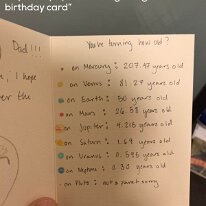 birthday card"
Dad!!!
, I hope
er the
You're turning how old?
on Mercury: 207.47 years old
on Venus: 81.27 years old
on Earth: 50 years old
on Mars: 26.58 years old
on Jupiter: 4.215 years old
on Saturn: 1.69 years old
on Uranus: 0.595 years old
on Neptune: 0.30 years old
on Pluto: not a planet sorry